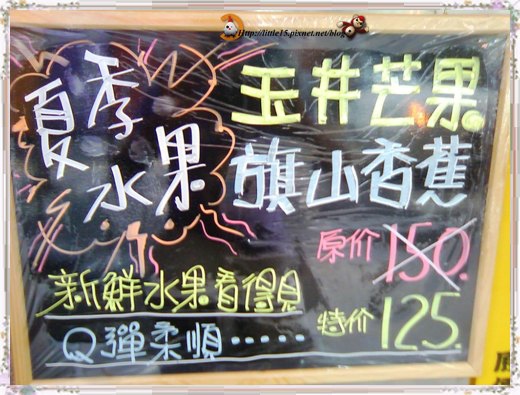 Http://little15.pixnet.net/blog
夏季
水果
玉井芒果
旗山香蕉
原价 150.
新鮮水果看得見
特价 125.
Q彈柔順.....